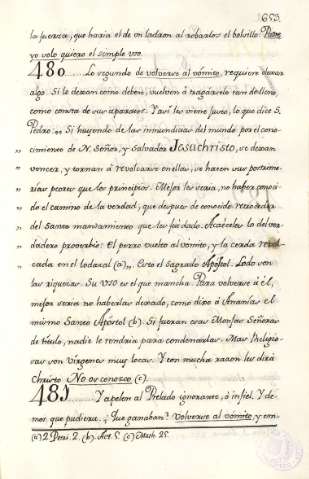 653.
la fuerza, que haria el de un ladron al robarlos el bolsillo. Pase
yo solo quiero el simple uso.
480.... Lo segundo de volverse al vómito, requiere dexar
algo. Si lo dexan como deben, vuelven à tragarselo con dolo,
como consta de sus apurares. Y así les viene justo, lo que dice S.
Pedro: Si huyendo de las inmundicias del mundo por el cono-
" cimiento de N. Señor, y Salvador Jesuchristo, se dexan
" vencer, y tornan à revolcarse en ellas, se hacen sus postrime-
" rias peores que los principios. Mejor les seria, no haber conoci-
" do el camino de la verdad, que despues de conocido retroceder
" del Santo mandamiento que les fue dado. Acaéceles lo del ver-
" dadero proverbio: El perro vuelto al vómito, y la cerda revol-
" cada en el lodazal (a)". Esto el sagrado Apóstol. Lodo son
las riquezas. Su uso es el que mancha. Para volverse à él,
mejor seria no haberlas dexado, como dixo à Ananías el
mismo Santo Apóstol (b). Si fueran esas Monjas Señoras
de titulo, nadie le tendria para condenarlas. Mas Religio-
sas son virgenes muy locas. Y con mucha razon les dirá
Christo No os conosco. (c)
481.... Yapelen al Prelado ignorante, ò infiel. Y de-
mos que pudiera. ¿Que ganaban? Volverse al vómito, y con
(a) 2. Petri. 2. (b). Act. 5. (c) Math. 25.